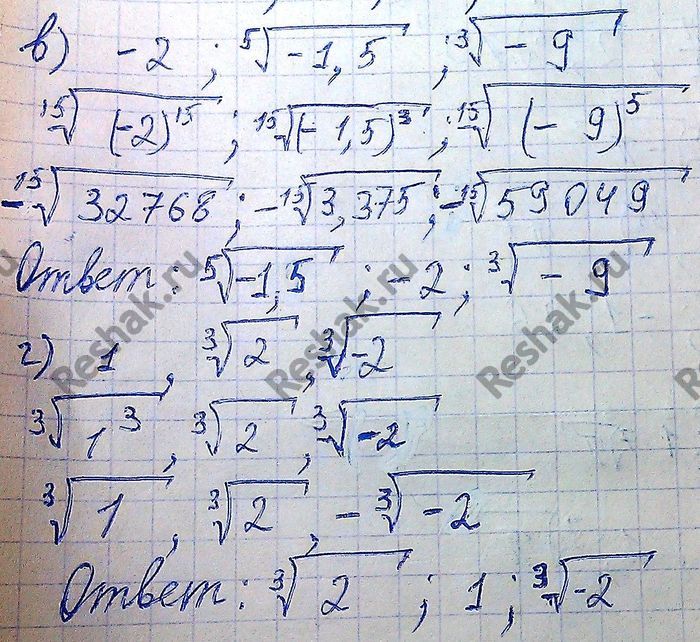 в) -2 ; ⁵√-1,5 ; ³√-9
¹⁵√(-2)¹⁵ ; ¹⁵√(-1,5)³ ; ¹⁵√(-9)⁵
-¹⁵√32768 ; -¹⁵√3,375 ; -¹⁵√59049
Ответ: ⁵√-1,5 ; -2 ; ³√-9
г) 1 , ³√2 , ³√-2
³√1³ , ³√2 , ³√-2
³√1 , ³√2 , -³√-2
Ответ: ³√2 ; 1 ; ³√-2
Reshak.ru
Reshak.ru
Reshak.ru